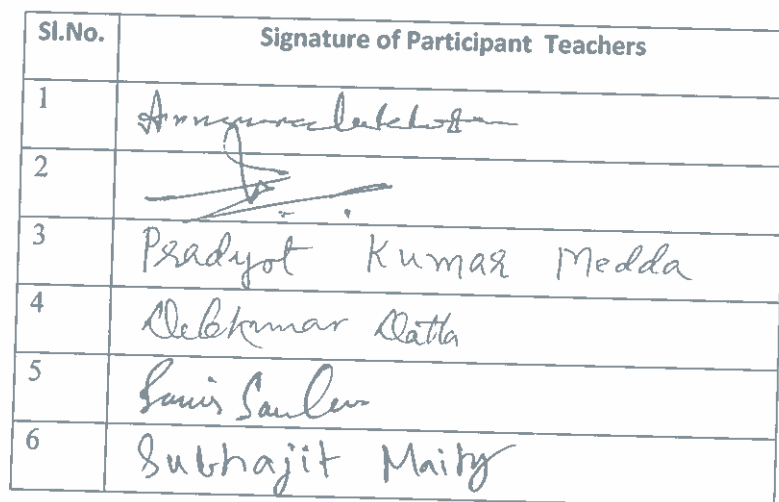 Sl.No. Signature of Participant Teachers
1
2
3 Pradyot Kumar Medda
4 Debkumar Datta
5
6 Subhajit Maity